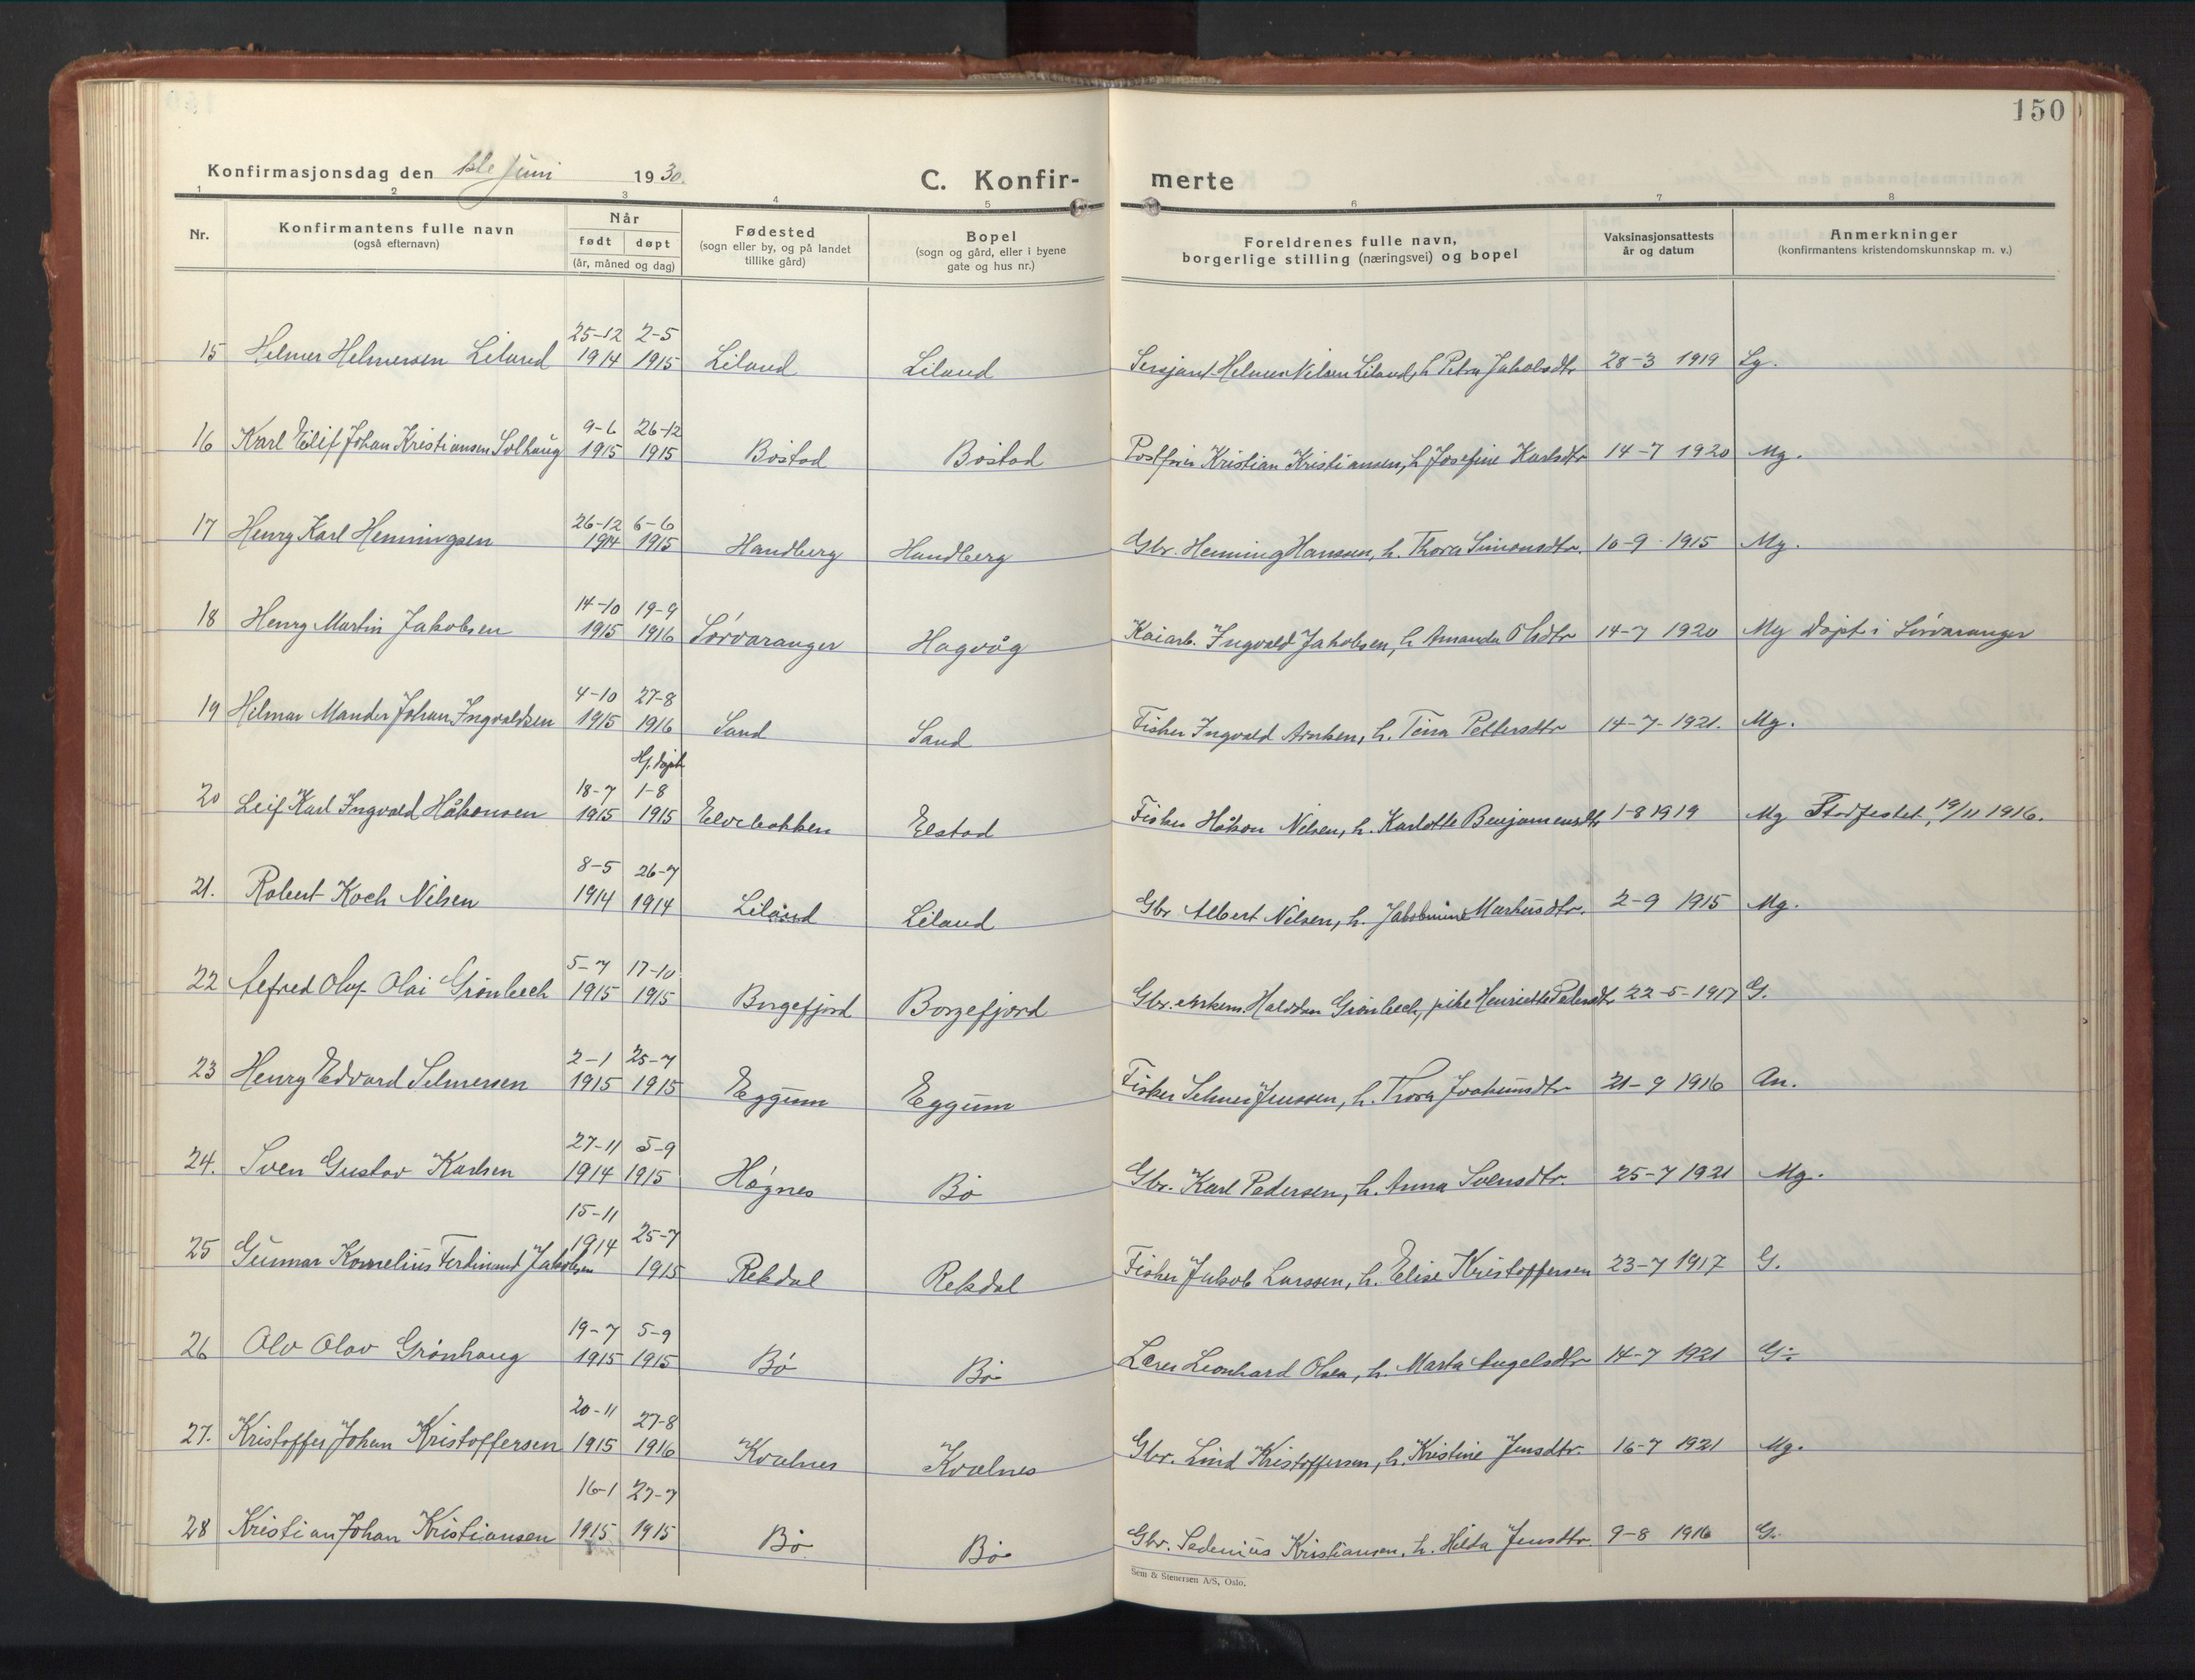 150
Konfirmasjonsdag den 1ste Juni 1930.
C. Konfir- merte
1 2 3 4 5 6 7 8
Nr.
Konfirmantens fulle navn
(også efternavn)
Når
født døpt
(år, måned og dag)
Fødested
(sogn eller by, og på landet
tillike gård)
Bopel
(sogn og gård, eller i byene
gate og hus nr.)
Foreldrenes fulle navn,
borgerlige stilling (næringsvei) og bopel
Vaksinasjonsattests
år og datum
Anmerkninger
(konfirmantens kristendomskunnskap m. v.)
25-12 2-5
15 Helmer Helmersen Liland 1914 1915 Liland Liland Sersjant Helmer Nilsen Liland, h. Petra Jakobsdtr 28-3 1919 Sg.
9-6 26-12
16 Karl Eilif Johan Kristiansen Solhaug 1915 1915 Bøstad Bøstad Kristian Kristiansen, h. Josefine Karlsdtr 14-7 1920 Mg.
26-12 6-6
17 Henry Karl Henningsen 1914 1915 Handberg Handberg Gbr. Henning Hanssen, h. Thora Simonsdtr. 10-9-1915 Mg.
14-10 19-9
18 Henry Martin Jakobsen 1915 1916 Sørvaranger Hagvåg Kaiarb. Ingvald Jakobsen, h. Amanda Olsdtr 14-7 1920 Mg Døpt i Sørvaranger
4-10 27-8
19 Hilmar Mander Johan Ingvaldsen 1915 1916 Sand Sand Fisker Ingvald Arntsen, h. Tina Pettersdtr 14-7-1921. Mg.
Hj. døpt
18-7 1-8
20 Leif Karl Ingvald Håkonsen 1915 1915 Elvebakken Elstad Fisker Håkon Nilsen, h. Karlotte Benjaminsdtr 1-8 1919 Mg Stadfestet 19/11 1916.
8-5 26-7
21. Robert Koch Nilsen 1914 1914 Liland Liland Gbr Albert Nilsen, h. Jakobmine Markusdtr. 2-9 1915 Mg.
5-7 17-10
22 Alfred Oluf Olai Grønbech 1915 1915 Borgefjord Borgefjord Gbr. enkem. Halvdan Grønbech, pike Henriette Pedersdtr 22-5-1917 G.
2-1 25-7
23 Henry Edvard Selmersen 1915 1915 Eggum Eggum Fisker Selmer Jenssen, h. Thora Joakimsdtr 21-9 1916 An.
27-11 5-9
24. Sven Gustav Karlsen 1914 1915 Høgnes Bø Gbr. Karl Pedersen, h. Anna Svensdtr. 25-7 1921 Mg.
15-11 25-7
25 Gunnar Kornelius Ferdinand Jakobsen 1914 1915 Rekdal Rekdal Fisker Jakob Larssen, h. Elise Kristoffersen 23-7 1917 G.
19-7 5-9
26 Olv Olav Grønhaug 1915 1915 Bø Bø Lærer Leonhard Olsen, h. Marta Angelsdtr 14-7 1921 G÷
20-11 27-8
27. Kristoffer Johan Kristoffersen 1915 1916 Kvalnes Kvalnes Gbr. Lind Kristoffersen, h. Kristine Jensdtr. 16-7 1921 Mg.
16-1 27-7
28 Kristian Johan Kristiansen 1915 1915 Bø Bø Gbr. Sedenius Kristiansen, h. Hilda Jensdtr. 9-8 1916 G.
Sem & Stenersen A/S, Oslo.